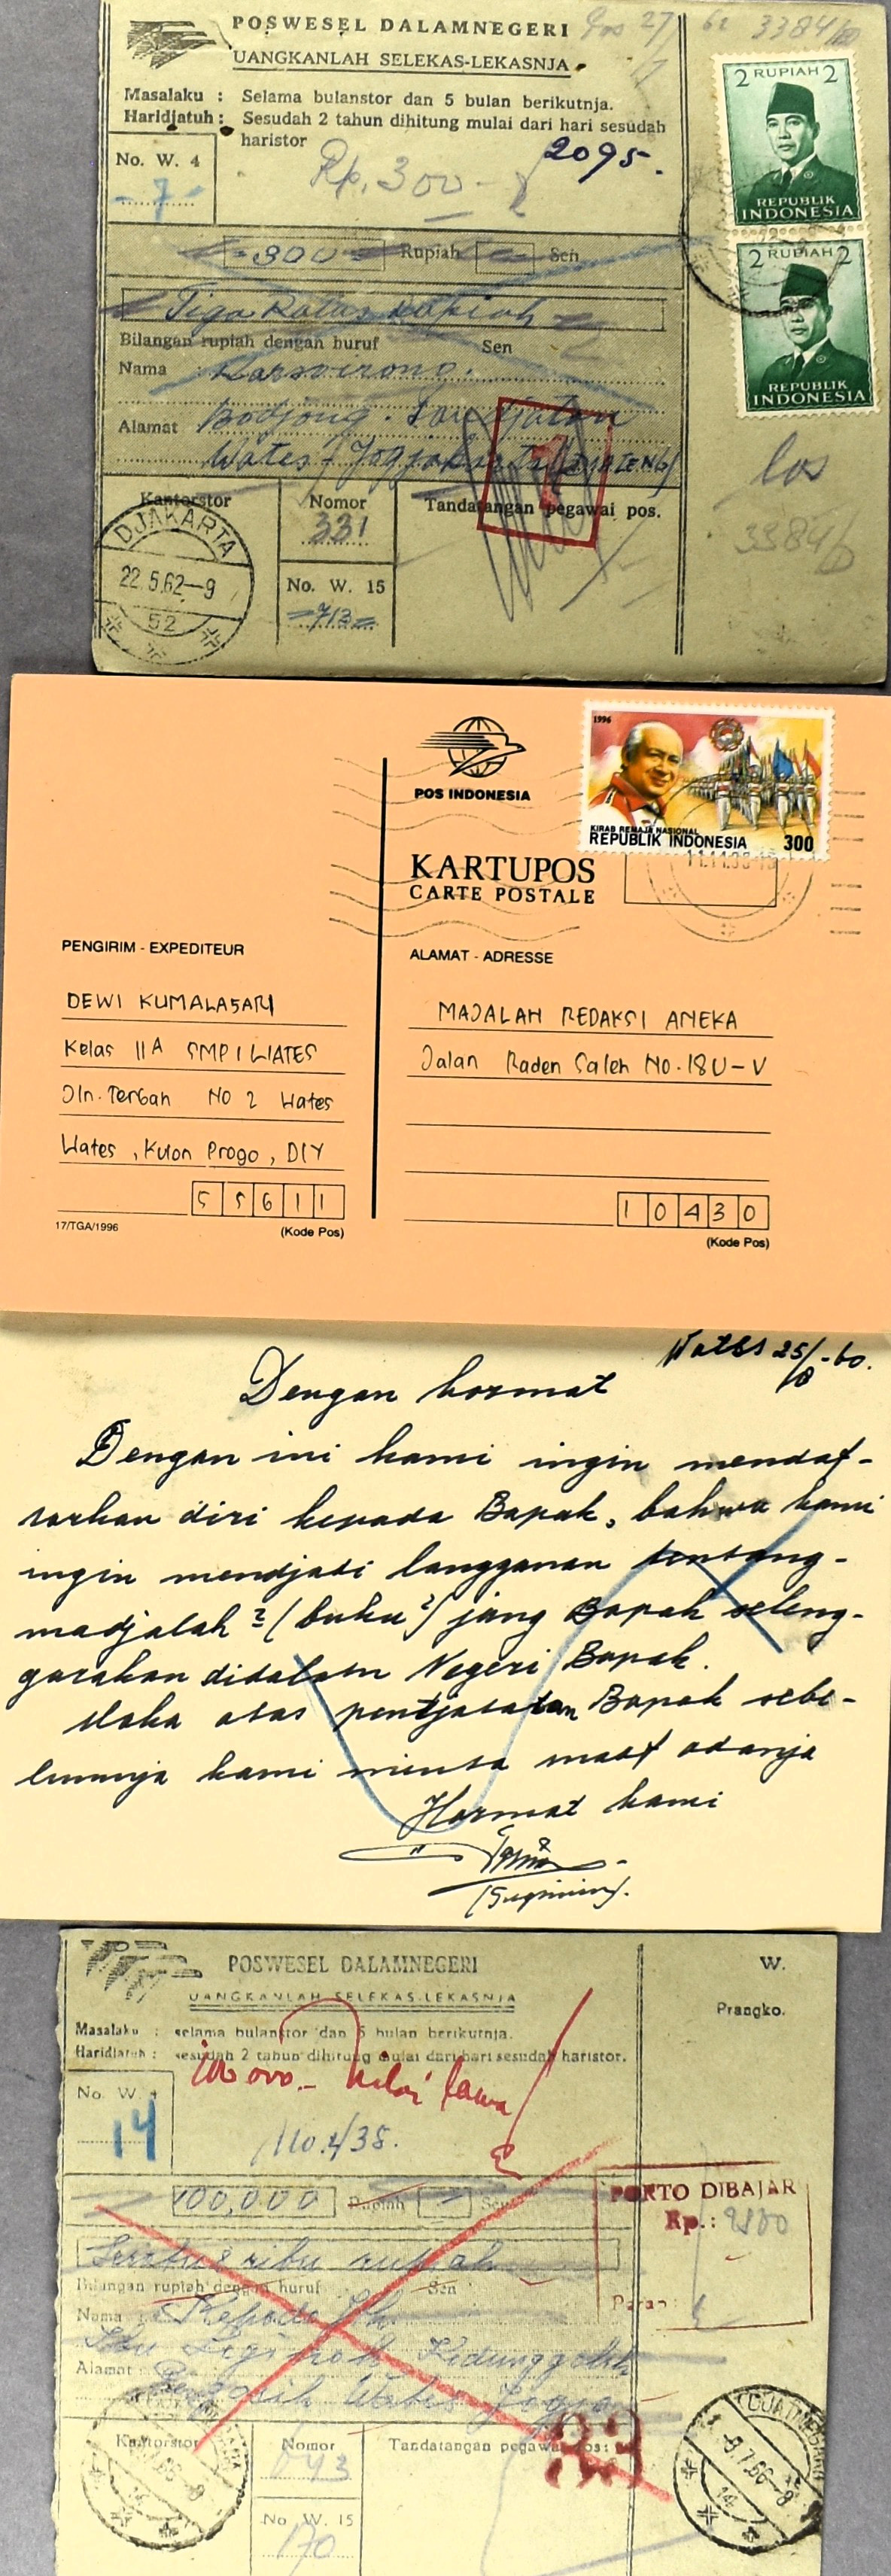 POSWESEL DALAMNEGERI
UANGKANLAH SELEKAS-LEKASNJA
Masalaku : Selama bulanstor dan 5 bulan berikutnja.
Haridjatuh : Sesudah 2 tahun dihitung mulai dari hari sesudah
haristor
3384/
2 RUPIAH 2
REPUBLIK
INDONESIA
2 RUPIAH 2
REPUBLIK
INDONESIA
No. W. 4
7
Rp. 300-
2095.
300 Rupiah Sen
Tiga Ratus rupiah
Bilangan rupiah dengan huruf Sen
Nama
Alamat Bodjong
Wates / Jogjakarta (DJATENG)
Kantorstor Nomor Tandatangan pegawai pos.
331
No. W. 15
713
DJAKARTA
22.5.62-9
52
los
3384/
POS INDONESIA
1996
KIRAB REMAJA NASIONAL
REPUBLIK INDONESIA 300
KARTUPOS
CARTE POSTALE
PENGIRIM - EXPEDITEUR
DEWI KUMALASARI
Kelas IIA SMP I WATES
Jln. Terbah No 2 Wates
Wates, Kulon Progo, DIY
55611
17/TGA/1996
(Kode Pos)
ALAMAT - ADRESSE
MAJALAH REDAKSI ANEKA
Jalan Raden Saleh No. 18 U-V
10430
(Kode Pos)
Wates 25/8-60.
Dengan hormat
Dengan ini kami ingin mendaf-
tarkan diri kepada Bapak, bahwa kami
ingin mendjadi langganan tentang-
madjalah2 (buku2) jang Bapak seleng-
garakan didalam Negeri Bapak.
Maka atas pentjatatan Bapak sebe-
lumnja kami minta maaf adanja
Hormat kami
POSWESEL DALAMNEGERI
UANGKANLAH SELEKAS-LEKASNJA
Masalaku : selama bulanstor dan 5 bulan berikutnja.
Haridjatuh : sesudah 2 tahun dihitung mulai dari hari sesudah haristor.
W.
Prangko.
No. W. 4
14
100,000 Rupiah Sen
Seratus ribu rupiah
Bilangan rupiah dengan huruf Sen
Nama Kepada Jth.
Alamat
Wates
PORTO DIBAJAR
Rp.:
Paraf:
Kantorstor Nomor Tandatangan pegawai pos:
No. W. 15
170